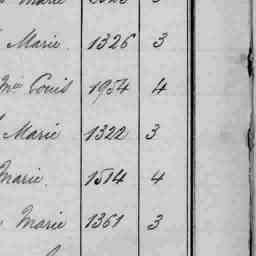 Marie. 1326 3
Mie Louis 1954 4
Marie 1322 3
Marie. 1514 4
Marie 1361 3